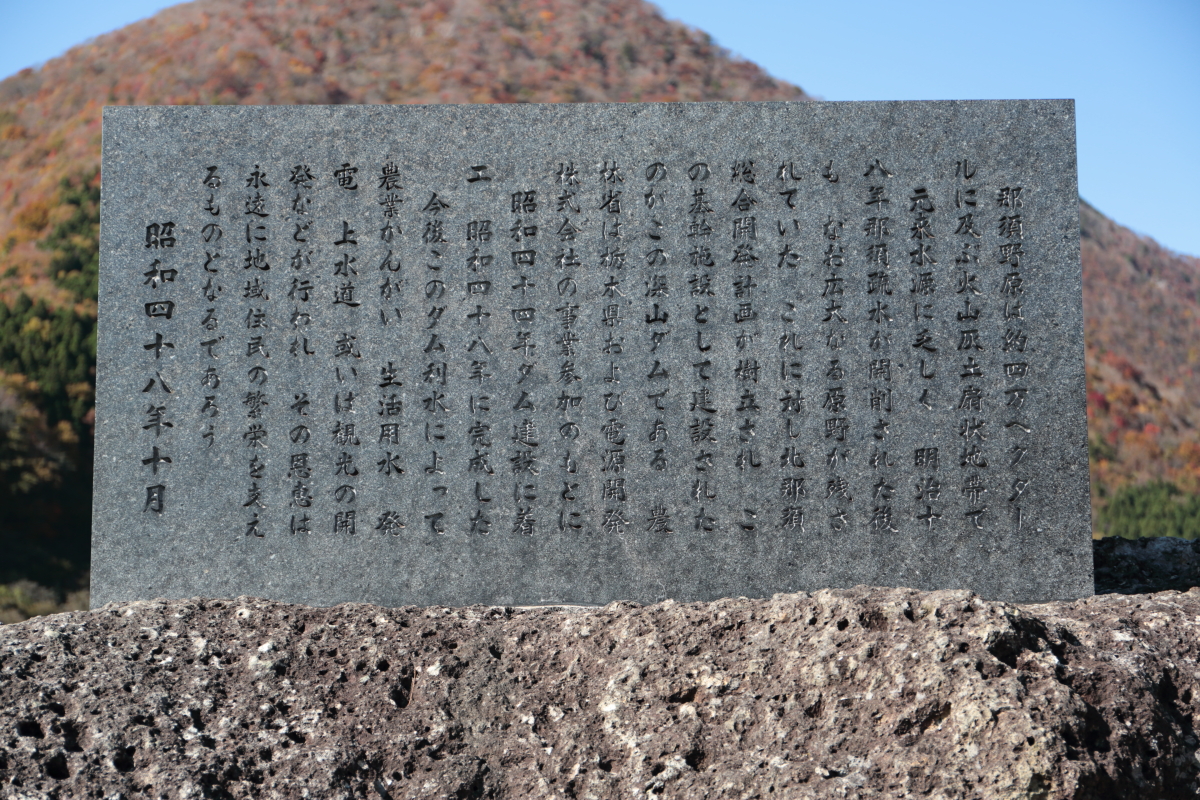 那須野原は約四万ヘクター
ルに及ぶ火山灰土扇状地帯で
元来水源に乏しく 明治十
八年那須疏水が開削された後
も なお広大なる原野が残さ
れていた これに対し北那須
総合開発計画が樹立され こ
の基幹施設として建設された
のがこの深山ダムである 農
林省は栃木県および電源開発
株式会社の事業参加のもとに
昭和四十四年ダム建設に着
工 昭和四十八年に完成した
今後このダム利水によって
農業かんがい 生活用水 発
電 上水道 或いは観光の開
発などが行われ その恩恵は
永遠に地域住民の繁栄を支え
るものとなるであろう
昭和四十八年十月